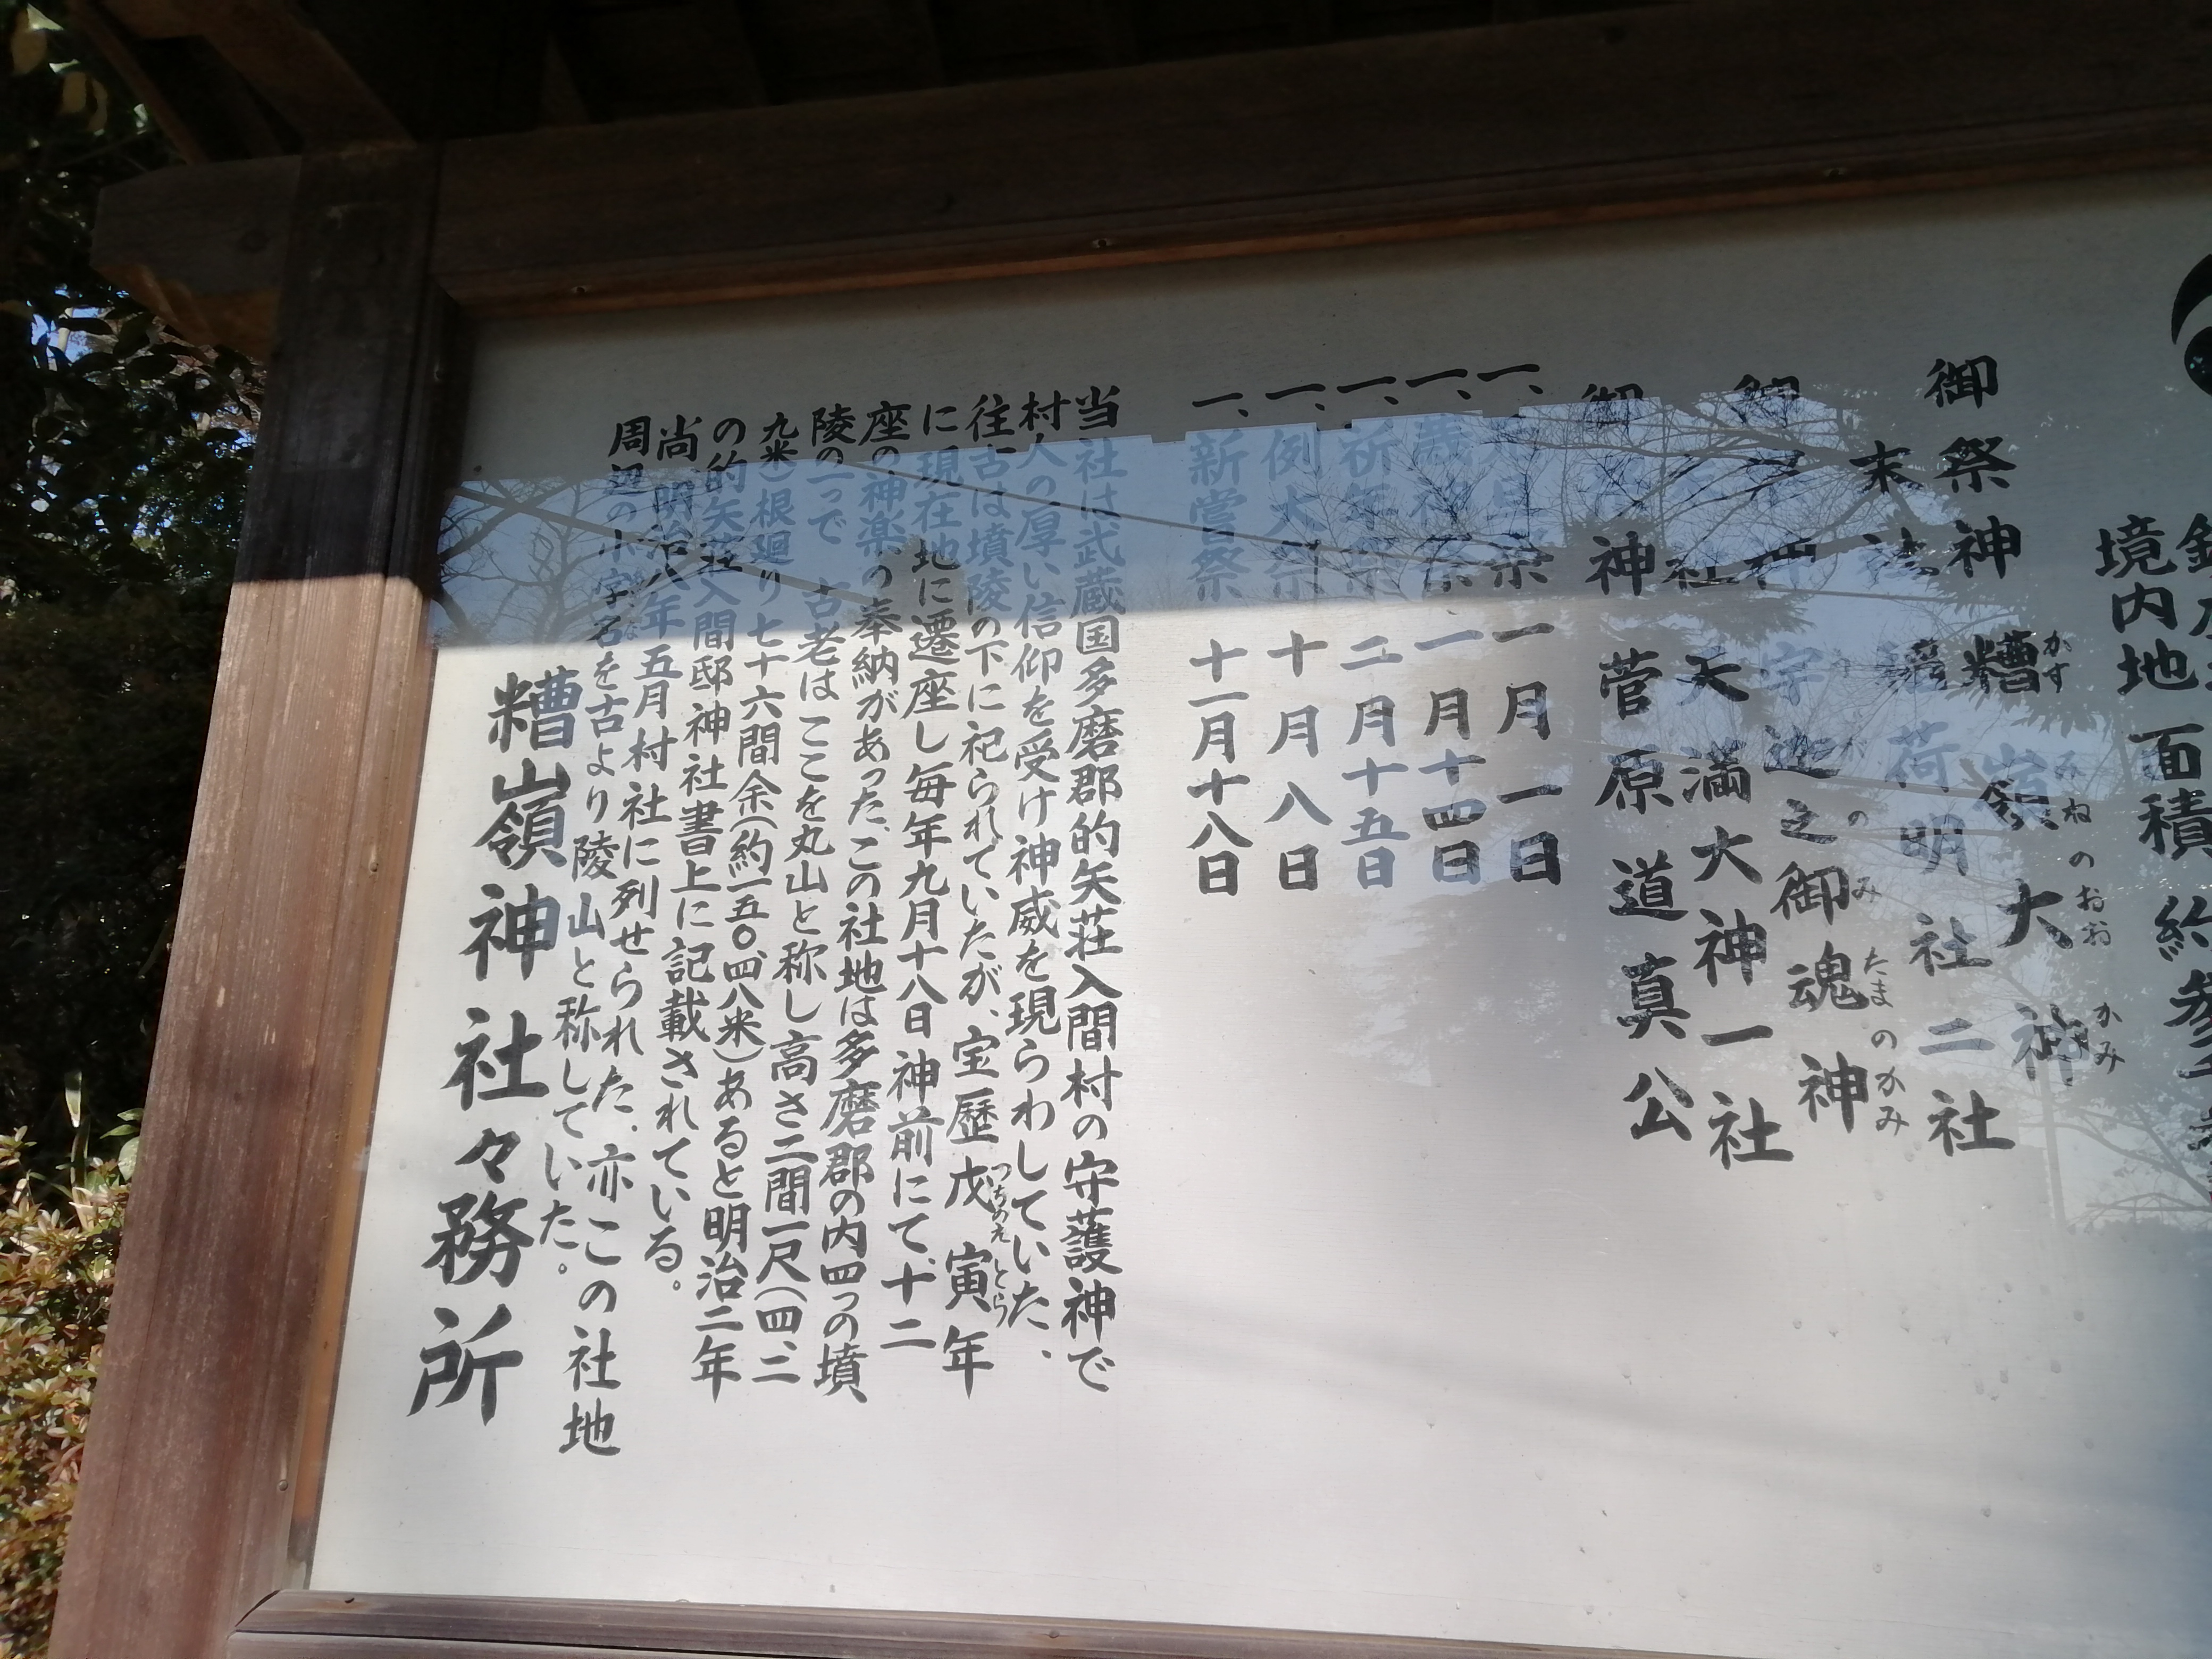 境内地 面積 約参
御祭神 糟嶺大神
かす みねのおおかみ
末社 稲荷明社二社
御祭神 宇迦之御魂神
がのみたまのかみ
末社 天満大神一社
御祭神 菅原道真公
一、元旦祭 一月一日
一、歳神祭 一月十四日
一、祈年祭 二月十五日
一、例大祭 十月八日
一、新嘗祭 十一月十八日
当社は武蔵国多磨郡的矢荘入間村の守護神で
村人の厚い信仰を受け神威を現らわしていた、
往古は墳陵の下に祀られていたが、宝歴戊寅年
つちのえ とら
に現在地地に遷座し毎年九月十八日神前にて、十二
座の神楽の奉納があった、この社地は多磨郡の内四つの墳
陵の一つで 古老はここを丸山と称し高さ二間一尺(四、二
九米)根廻り七十六間余(約一五〇、四八米)あると明治二年
の的矢荘入間邸神社書上に記載されている。
尚、明治八年五月村社に列せられた、亦この社地
周辺の小字名を古より陵山と称していた。
糟嶺神社々務所